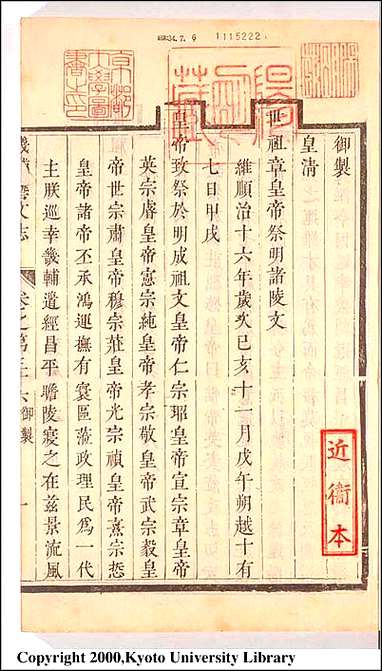 昭和34.7.9 1115222
京都大學圖書之印
近衞本
御製
皇清
世祖章皇帝祭明諸陵文
維順治十六年歲次己亥十一月戊午朔越十有
七日甲戌
皇帝致祭於明成祖文皇帝仁宗昭皇帝宣宗章皇帝
英宗睿皇帝憲宗純皇帝孝宗敬皇帝武宗毅皇
帝世宗肅皇帝穆宗莊皇帝光宗禎皇帝熹宗悊
皇帝諸帝丕承鴻運撫有寰區蒞政理民爲一代
主朕巡幸畿輔道經昌平瞻陵寢之在茲景流風
畿輔藝文志 卷之第三十六 御製 一
Copyright 2000,Kyoto University Library